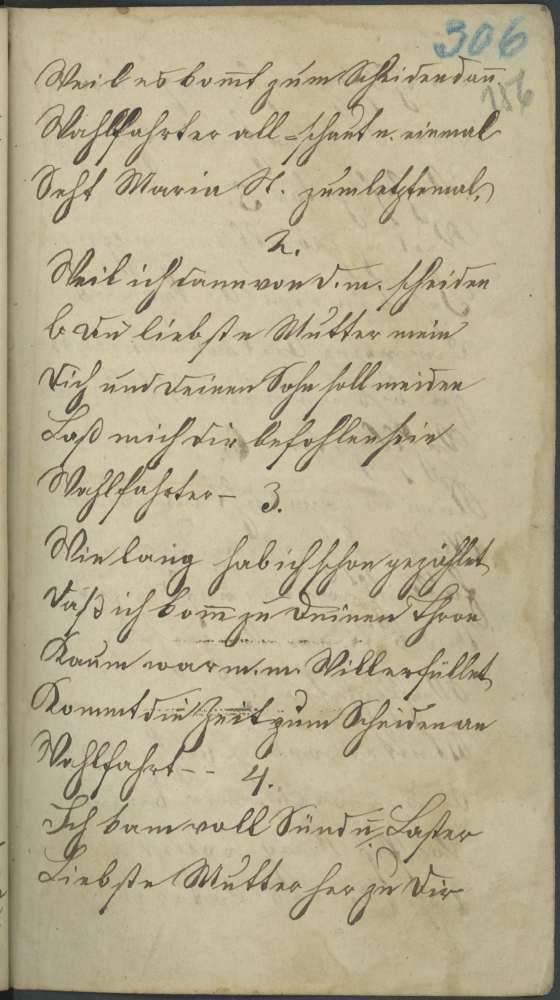 306
156
Weil es kom̄t zum Scheiden dan̄
Wahlfahrter all = schaut n. einmal
Seht Maria St. zum letztemal,
2.
Weil ich dann von d. m. scheiden
O Du liebste Mutter mein
Dich und Deinen Sohn soll meiden
Laß mich dir befohlen sein
Wahlfahrter –
3.
Wie lang hab ich schon gezählet
Daß ich kom̄ zu Deinen Thron
Kaum war m. m. Will erfüllet
Kommt die Zeit zum Scheiden an
Wahlfahrt - -
4.
Ich kam voll Sünd u. Laster
Liebste Mutter her zu Dir